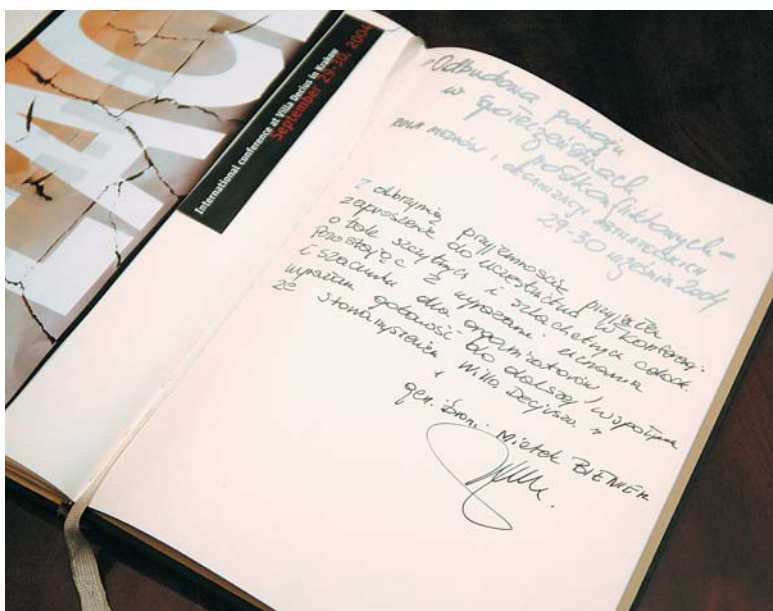 International conference at Villa Decius in Krakow
September 29-30, 2004
„Odbudowa pokoju
w społeczeństwach
postkonfliktowych –
ROLA MEDIÓW I ORGANIZACJI
29-30 września 2004
Z olbrzymią przyjemnością przyjąłem
zaproszenie do uczestnictwa w Konferencji
o tak szczytnych i szlachetnych celach.
Pozostając z wyrazami uznania
i szacunku dla organizatorów,
wyrażam gotowość do dalszej współpracy
ze stowarzyszeniem Willa Decjusza
gen. broni Mietek BIENIEK